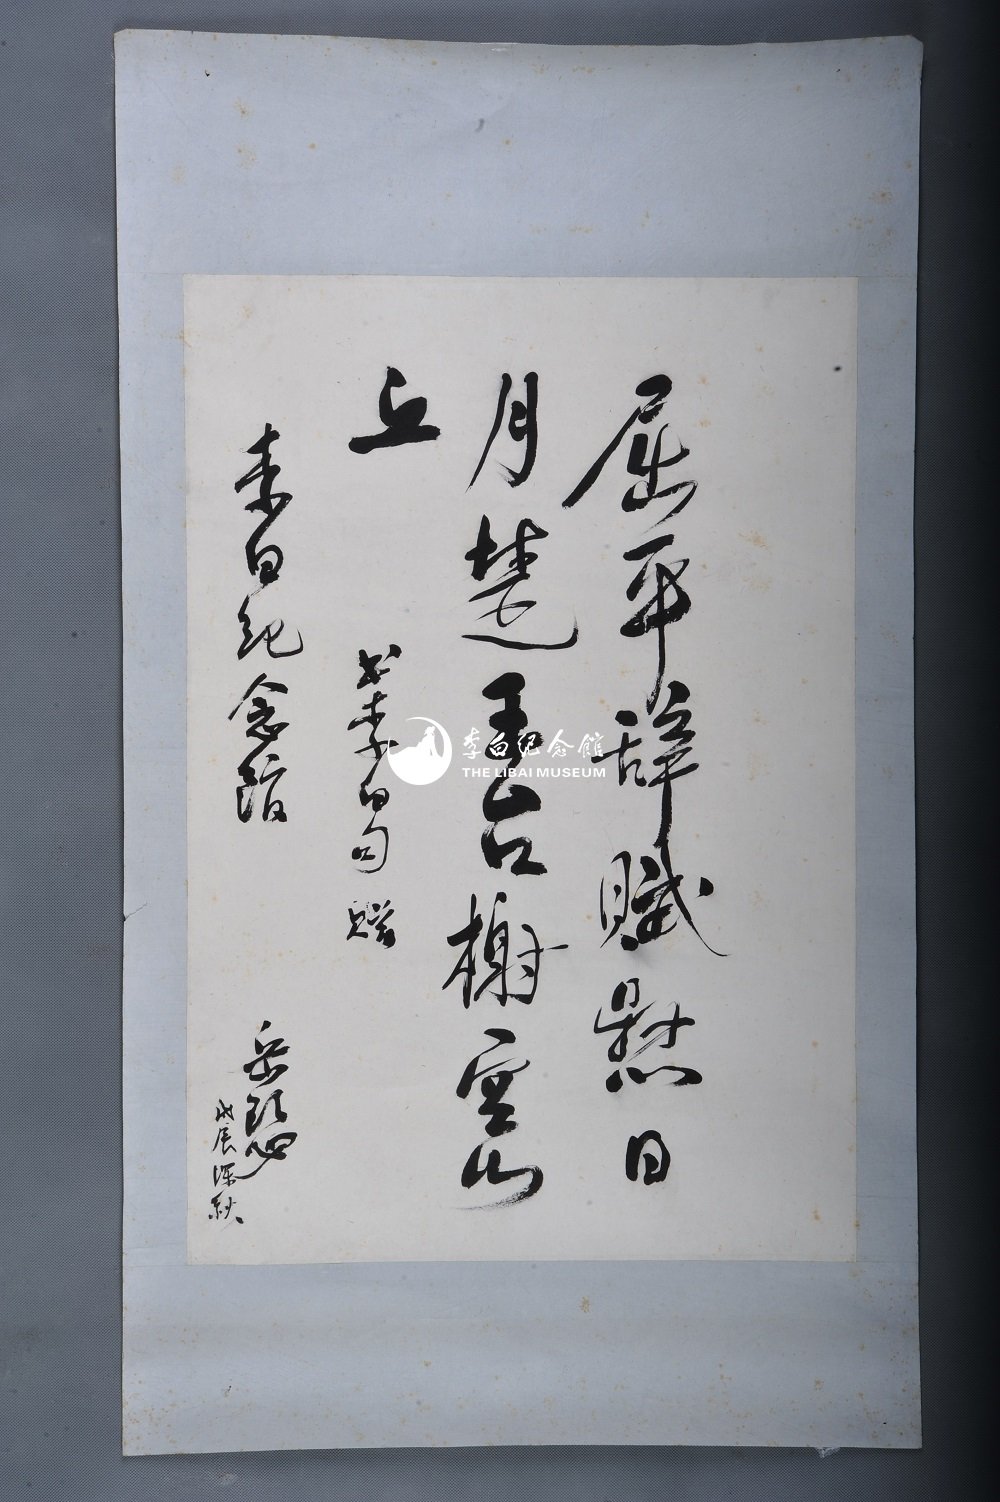 屈平辞賦懸日
月楚王台榭空山
丘
书李白句赠
李白纪念馆
岳
戊辰深秋
李白纪念館
THE LIBAI MUSEUM